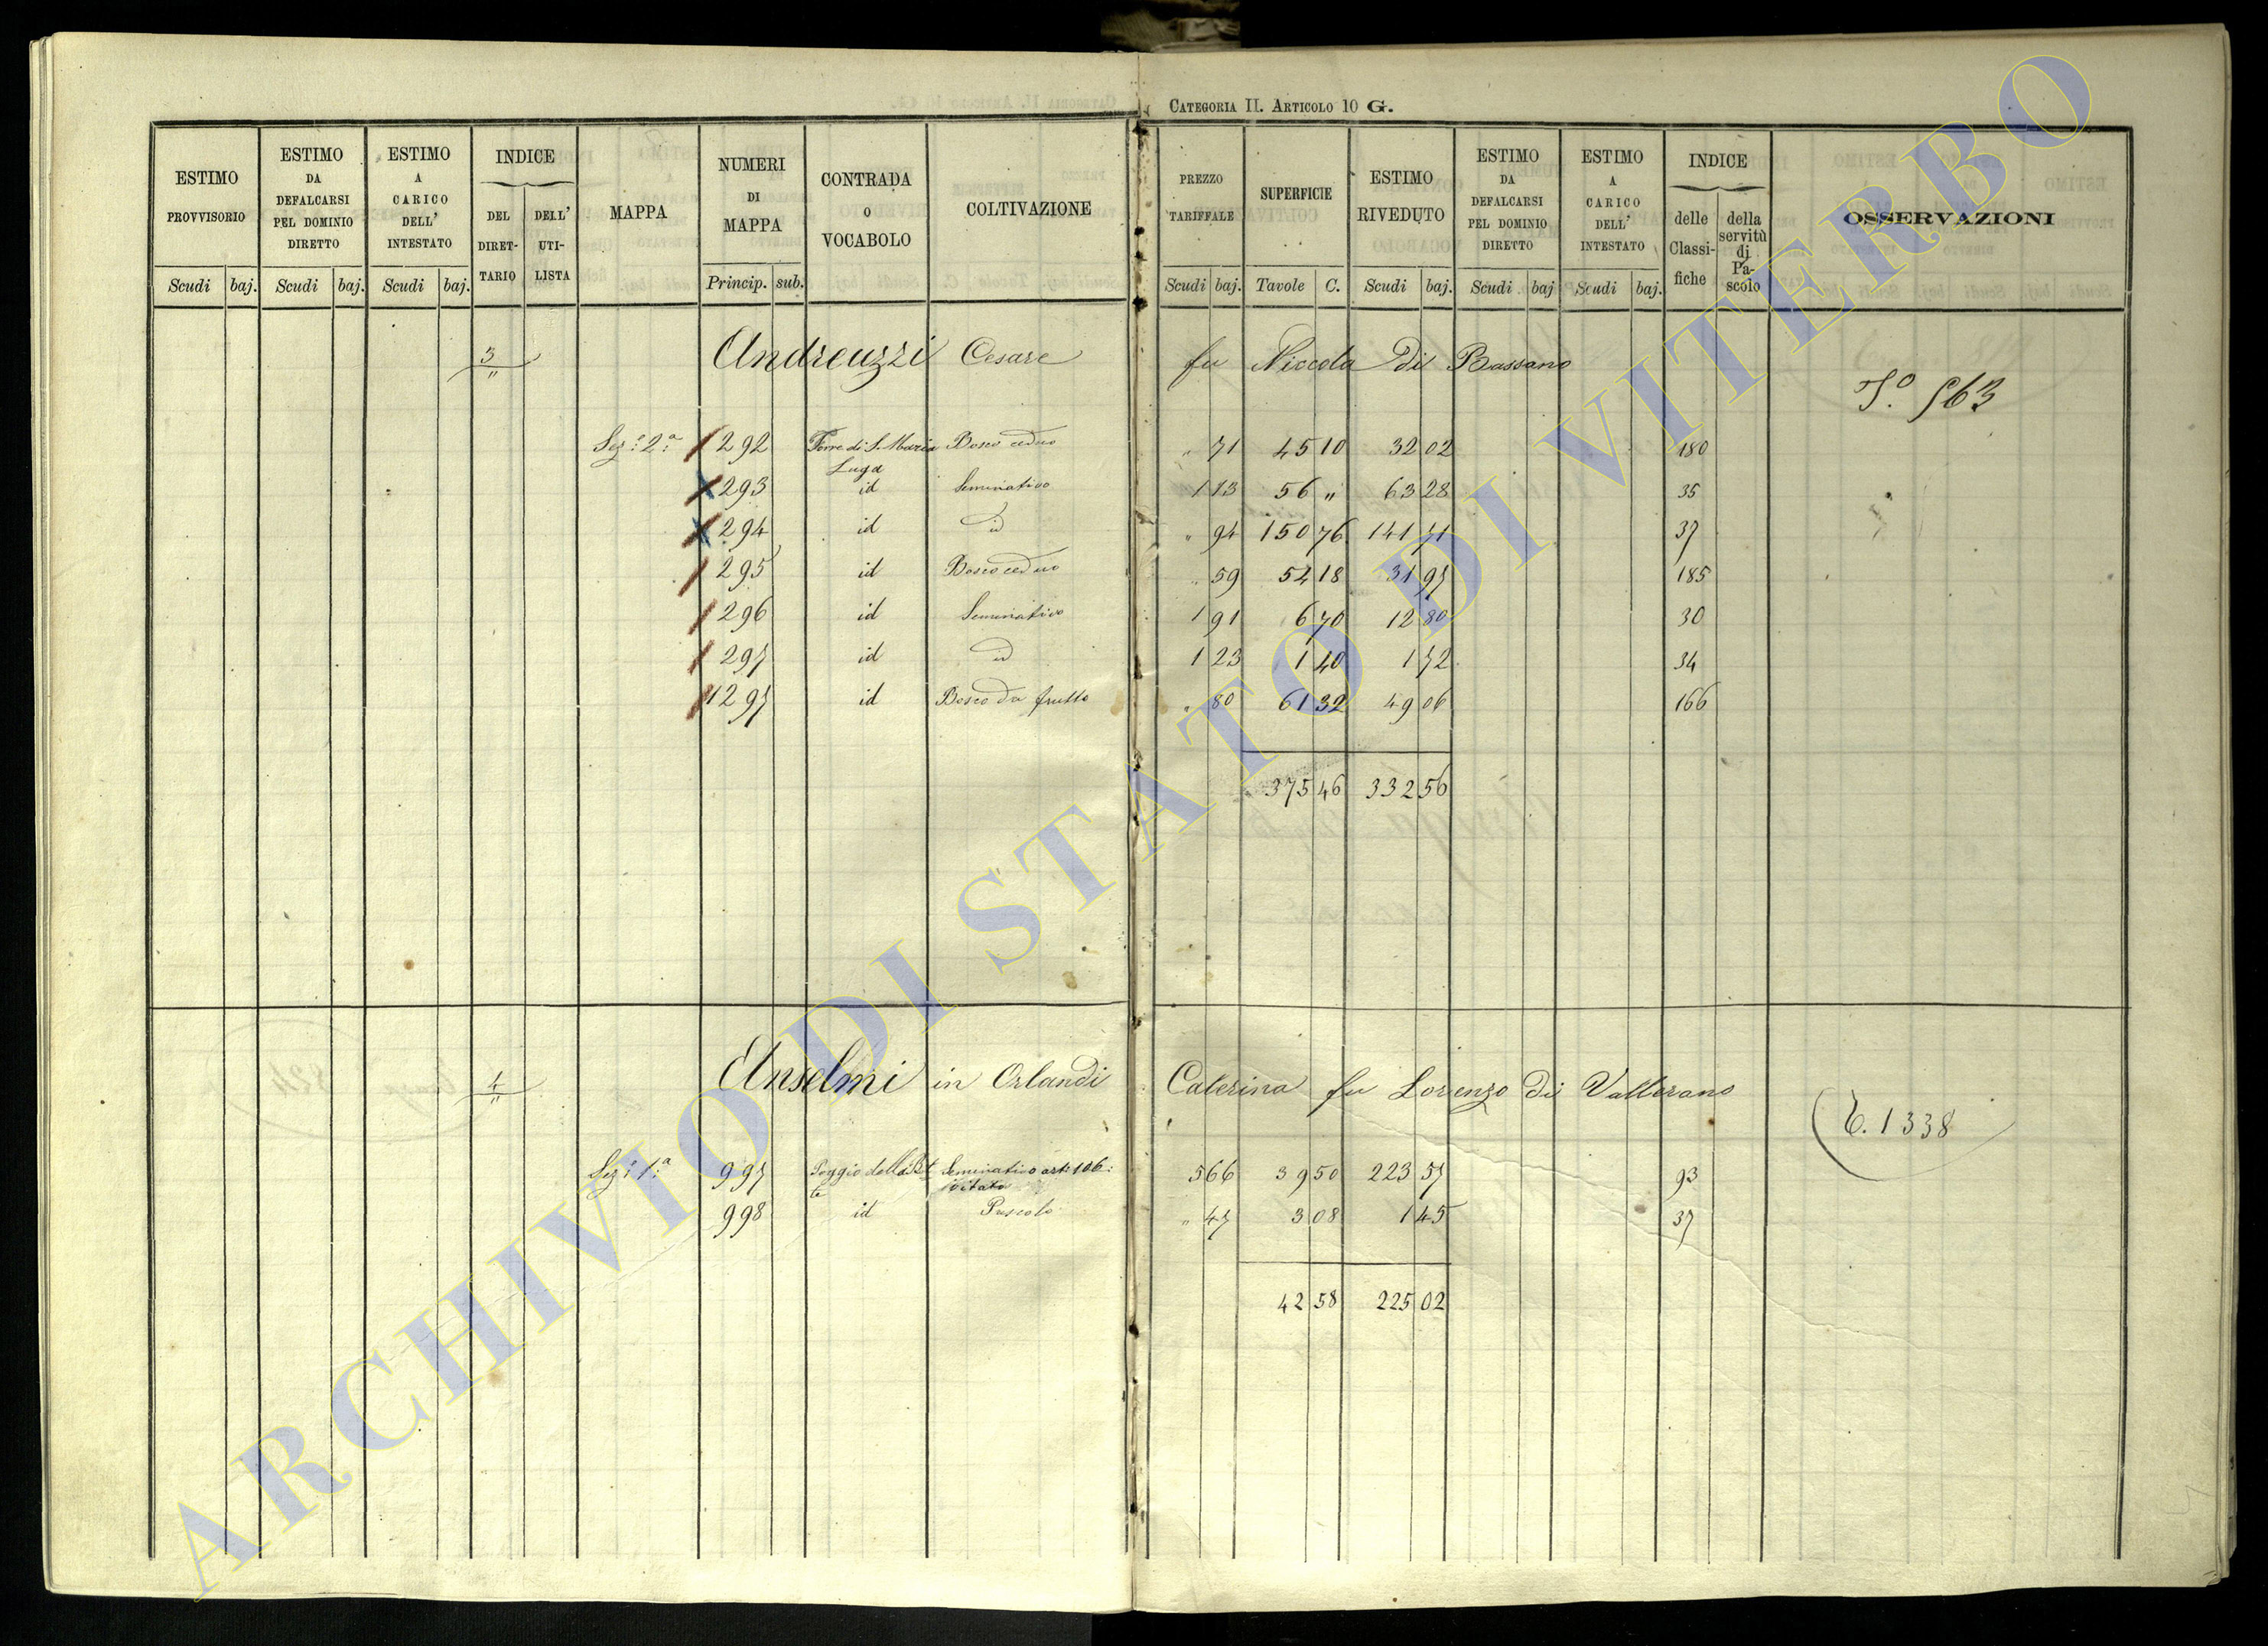 CATEGORIA II. ARTICOLO 10 G.
ESTIMO PROVVISORIO Scudi baj.
ESTIMO DA DEFALCARSI PEL DOMINIO DIRETTO Scudi baj.
ESTIMO A CARICO DELL' INTESTATO Scudi baj.
INDICE DEL DIRET-TARIO DELL' UTI-LISTA
MAPPA
NUMERI DI MAPPA Princip. sub.
CONTRADA O VOCABOLO
COLTIVAZIONE
PREZZO TARIFFALE Scudi baj.
SUPERFICIE Tavole C.
ESTIMO RIVEDUTO Scudi baj.
ESTIMO DA DEFALCARSI PEL DOMINIO DIRETTO Scudi baj
ESTIMO A CARICO DELL' INTESTATO Scudi baj.
INDICE delle Classi-fiche della servitù di Pa-scolo
OSSERVAZIONI
3 Andreuzzi Cesare fu Niccola di Bassano
" 
Sez: 2ª 292 Torre di S. Maria Bosco ceduo " 71 45 10 32 02 180
Luga
293 id Seminativo 1 13 56 " 63 28 35
294 id id " 94 150 76 141 71 37
295 id Bosco ceduo " 59 54 18 31 97 185
296 id Seminativo 1 91 6 70 12 80 30
297 id id 1 23 1 40 1 72 34
1297 id Bosco da frutto " 80 61 32 49 06 166
375 46 332 56
4 Anselmi in Orlandi Caterina fu Lorenzo di Vallerano
"
T. 1338
Sez: 1ª 997 Poggio della Seminativo 5 66 39 50 223 57 93
998 id Pascolo " 47 3 08 1 45 37
42 58 225 02
ARCHIVIO DI STATO DI VITERBO